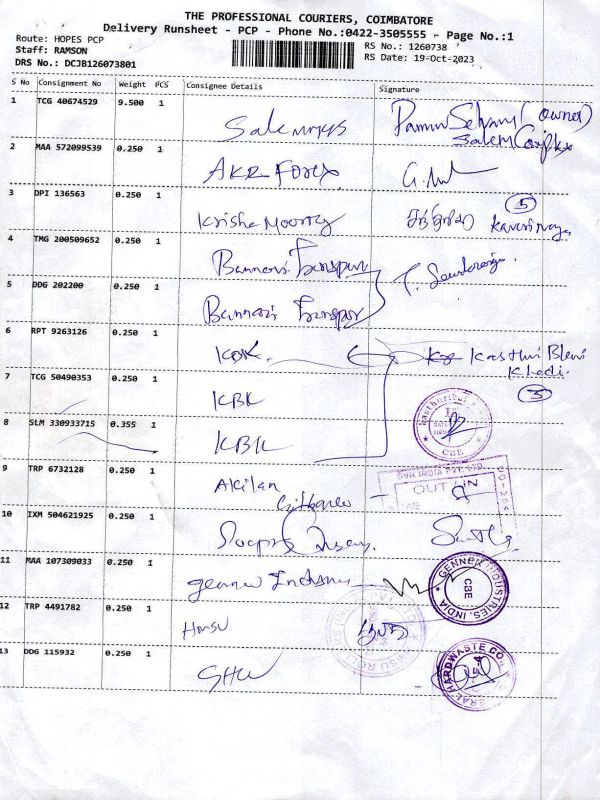 THE PROFESSIONAL COURIERS, COIMBATORE
Delivery Runsheet - PCP - Phone No.:0422-3505555 - Page No.:1
Route: HOPES PCP
RS No.: 1260738
Staff: RAMSON
RS Date: 19-Oct-2023
DRS No.: DCJB126073801
S No Consignment No Weight PCS Consignee Details Signature
1 TCG 40674529 9.500 1 (owner)
2 MAA 572099539 0.250 1 AKR Forex
3 DPI 136563 0.250 1 Krishe Moorty 5
4 TMG 200509652 0.250 1 Bannari Transport
5 DDG 202200 0.250 1 Bannari Transport
6 RPT 9263126 0.250 1 Kasthuri
7 TCG 50490353 0.250 1 KBK 3
8 SLM 330933715 0.355 1 KBK
CBE
9 TRP 6732128 0.250 1 Akilan
INDIA PVT LTD
OUT IN
10 IXM 504621925 0.250 1
11 MAA 107309033 0.250 1
GENNEX INDUSTRIES, INDIA
CBE
12 TRP 4491782 0.250 1 HMSU
13 DDG 115932 0.250 1 SHW
HARDWASTE CO